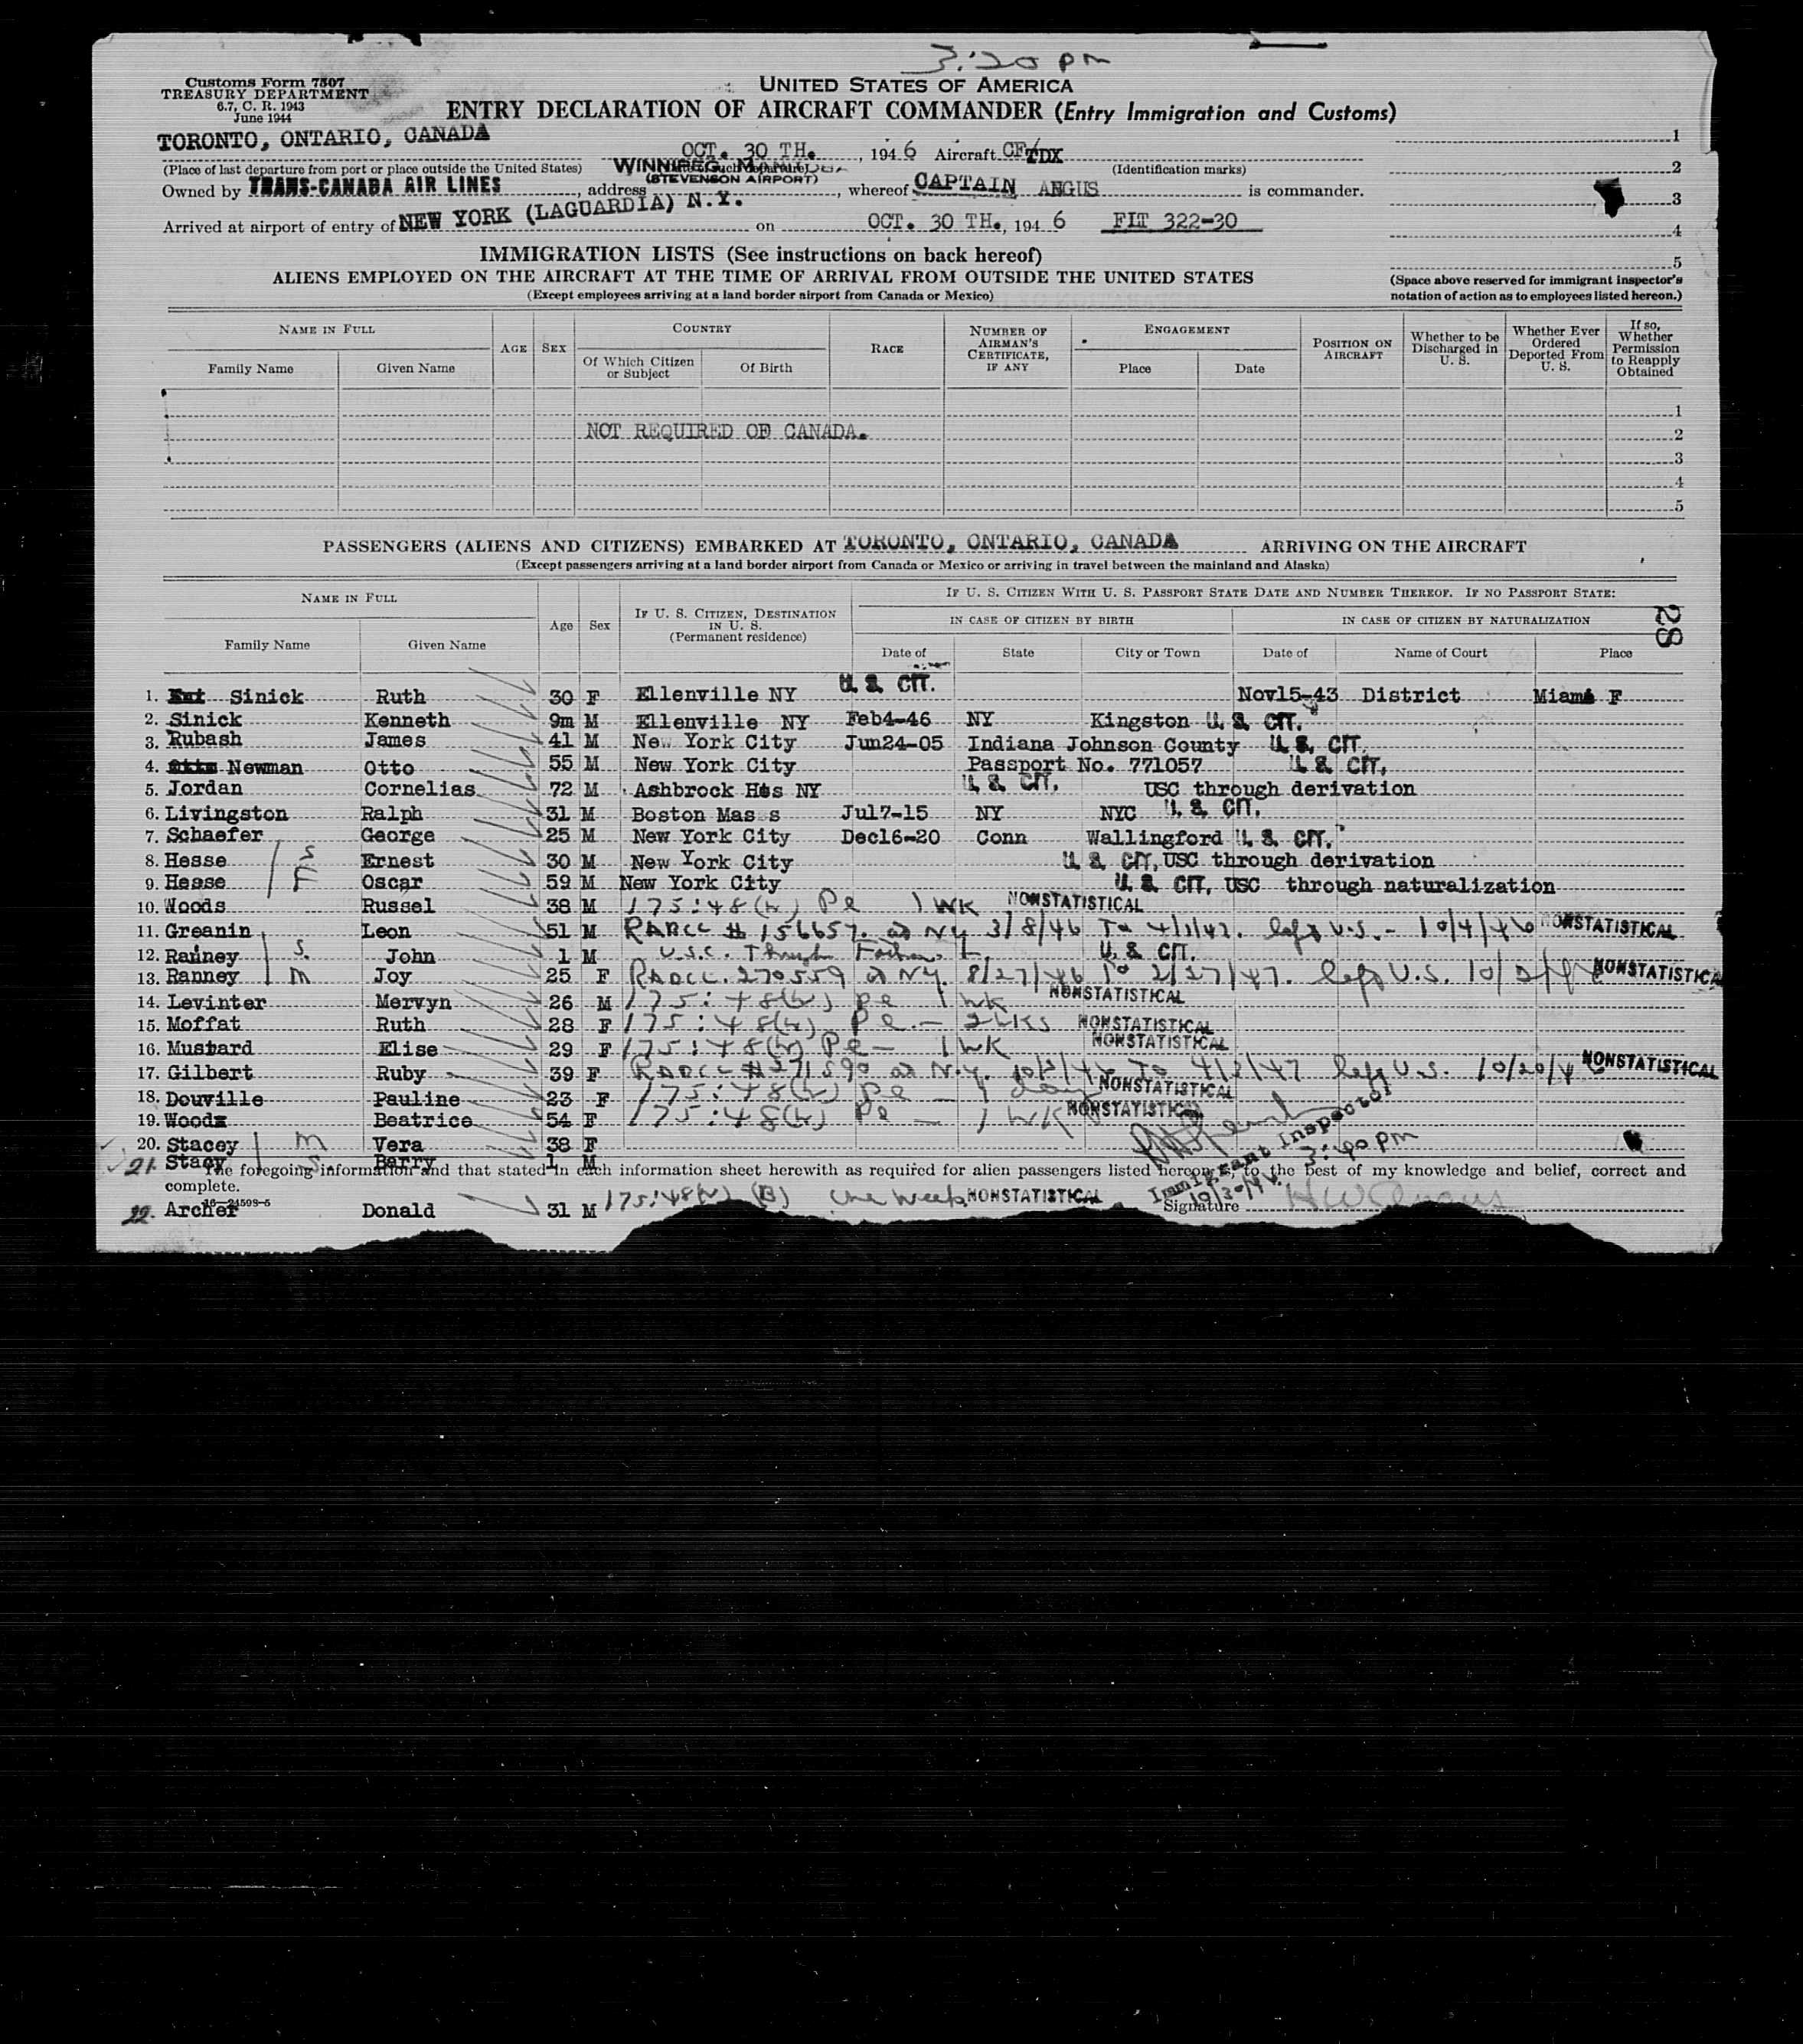 3:20 pm
Customs Form 7507
TREASURY DEPARTMENT
6.7, C. R. 1943
June 1944
UNITED STATES OF AMERICA
ENTRY DECLARATION OF AIRCRAFT COMMANDER (Entry Immigration and Customs)
TORONTO, ONTARIO, CANADA OCT. 30 TH., 1946 Aircraft CF TDX
(Place of last departure from port or place outside the United States) WINNIPEG, (Identification marks)
(STEVENSON AIRPORT)
Owned by TRANS-CANADA AIR LINES, address, whereof CAPTAIN ANGUS is commander.
Arrived at airport of entry of NEW YORK (LAGUARDIA) N.Y. on OCT. 30 TH., 1946 FLT 322-30
1
2
3
4
5
(Space above reserved for immigrant inspector's notation of action as to employees listed hereon.)
IMMIGRATION LISTS (See instructions on back hereof)
ALIENS EMPLOYED ON THE AIRCRAFT AT THE TIME OF ARRIVAL FROM OUTSIDE THE UNITED STATES
(Except employees arriving at a land border airport from Canada or Mexico)
NAME IN FULL
Family Name Given Name
AGE SEX
COUNTRY
Of Which Citizen or Subject Of Birth
RACE
NUMBER OF AIRMAN'S CERTIFICATE, IF ANY
ENGAGEMENT
Place Date
POSITION ON AIRCRAFT
Whether to be Discharged in U. S.
Whether Ever Ordered Deported From U. S.
If so, Whether Permission to Reapply Obtained
1
NOT REQUIRED OF CANADA. 2
3
4
5
PASSENGERS (ALIENS AND CITIZENS) EMBARKED AT TORONTO, ONTARIO, CANADA ARRIVING ON THE AIRCRAFT
(Except passengers arriving at a land border airport from Canada or Mexico or arriving in travel between the mainland and Alaska)
NAME IN FULL
Family Name Given Name
Age Sex
IF U. S. CITIZEN, DESTINATION IN U. S. (Permanent residence)
IF U. S. CITIZEN WITH U. S. PASSPORT STATE DATE AND NUMBER THEREOF. IF NO PASSPORT STATE:
IN CASE OF CITIZEN BY BIRTH IN CASE OF CITIZEN BY NATURALIZATION
28
Date of State City or Town Date of Name of Court Place
1. Sinick Ruth 30 F Ellenville NY U. S. CIT. Nov15-43 District Miami F
2. Sinick Kenneth 9m M Ellenville NY Feb4-46 NY Kingston U. S. CIT.
3. Rubash James 41 M New York City Jun24-05 Indiana Johnson County U. S. CIT.
4. Newman Otto 55 M New York City Passport No. 771057 U. S. CIT.
5. Jordan Cornelias 72 M Ashbrock Hts NY U. S. CIT. USC through derivation
6. Livingston Ralph 31 M Boston Mas s Jul7-15 NY NYC U. S. CIT.
7. Schaefer George 25 M New York City Dec16-20 Conn Wallingford U. S. CIT.
8. Hesse S Ernest 30 M New York City U. S. CIT, USC through derivation
9. Hesse F Oscar 59 M New York City U. S. CIT, USC through naturalization
10. Woods Russel 38 M 175:48(w) Pe 1 WK NONSTATISTICAL
11. Greanin Leon 51 M RABCC # 156657. at NY 3/8/46 To 4/1/47. left U.S. - 10/4/46 NONSTATISTICAL
12. Ranney S. John 1 M U.S.C. Through Father U. S. CIT.
13. Ranney m Joy 25 F RABCC. 270559 at NY. 8/27/46 To 2/27/47. left U.S. NONSTATISTICAL
14. Levinter Mervyn 26 M 175:48(w) Pe 1 wk NONSTATISTICAL
15. Moffat Ruth 28 F 175:48(w) Pe - 2 WKS NONSTATISTICAL
16. Mustard Elise 29 F 175:48(w) Pe - 1 WK NONSTATISTICAL
17. Gilbert Ruby 39 F RABCC #271590 at N.Y. To 4/2/47 left U.S. NONSTATISTICAL
18. Douville Pauline 23 F 175:48(w) Pe - day NONSTATISTICAL
19. Woods Beatrice 54 F 175:48(w) Pe - 1 WK NONSTATISTICAL
20. Stacey m Vera 38 F
21. Stacy S. Barry 1 M
Immigrant Inspector
3:40 pm
The foregoing information and that stated in each information sheet herewith as required for alien passengers listed hereon is, to the best of my knowledge and belief, correct and complete.
16-24598-5
22. Archer Donald 31 M 175:48(w) (B) One week NONSTATISTICAL
Signature H W Angus